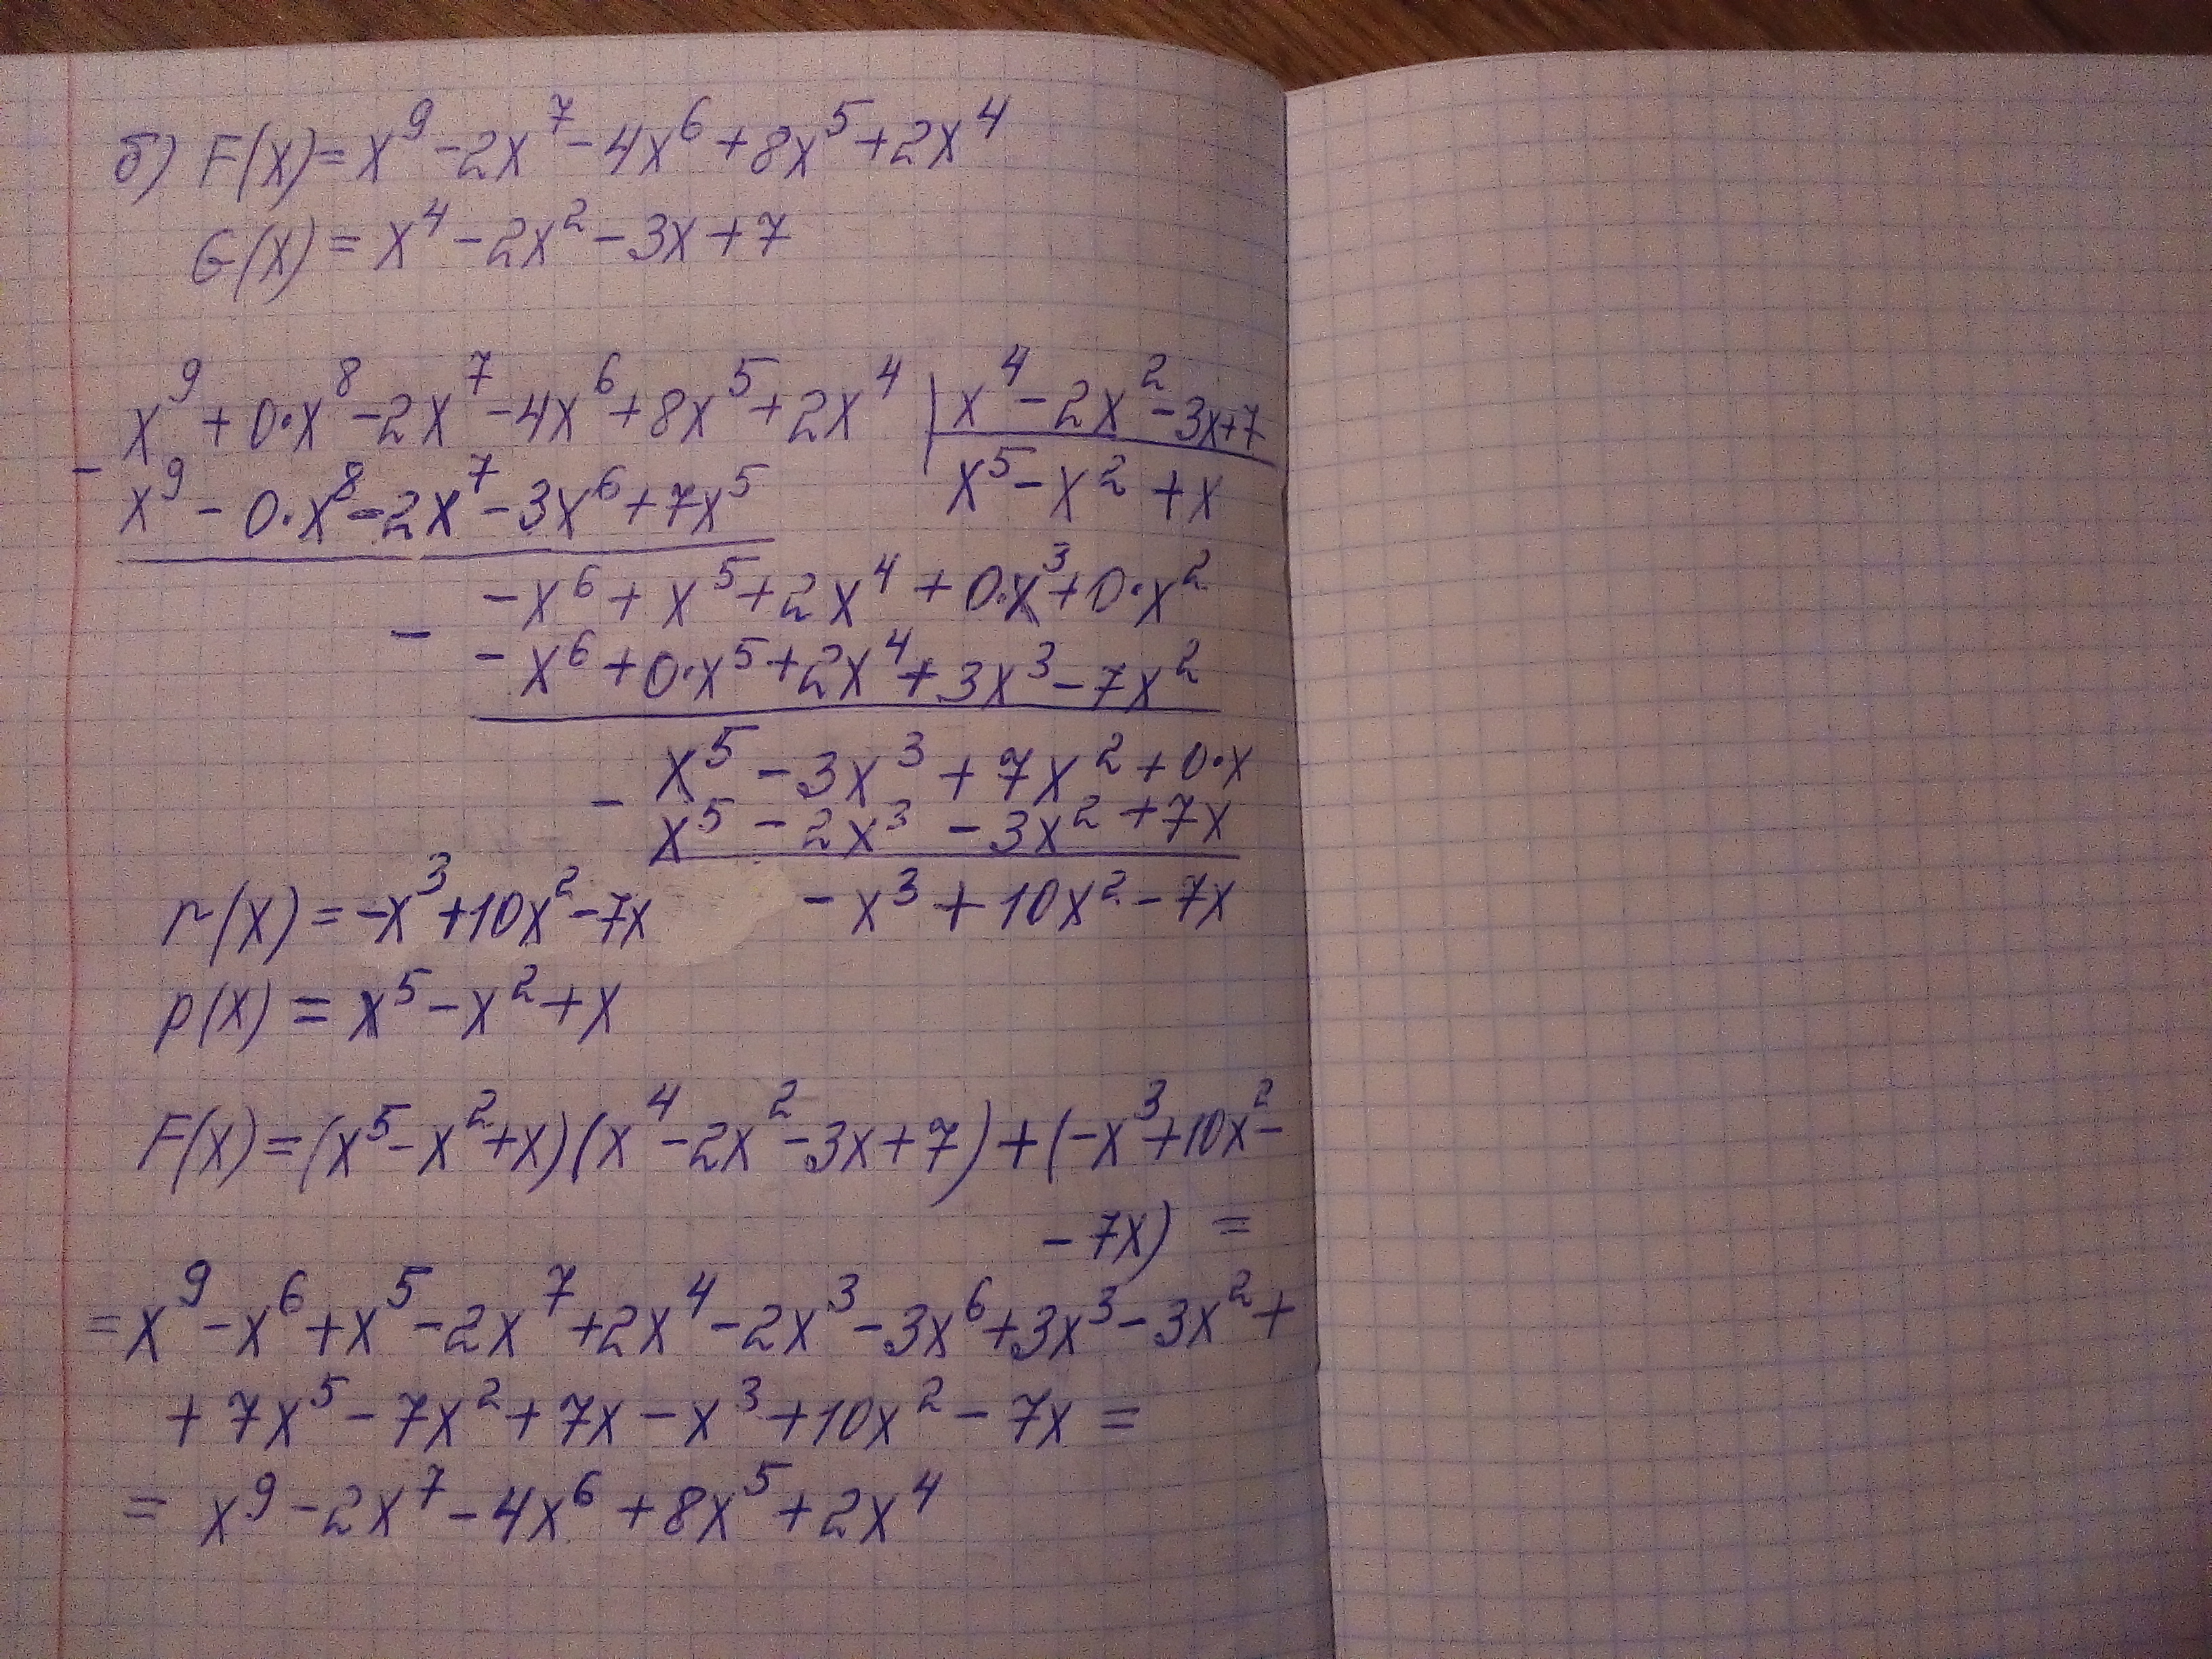 б) F(x)= x⁹-2x⁷-4x⁶+8x⁵+2x⁴
G(x)= x⁴-2x²-3x+7
x⁹+0·x⁸-2x⁷-4x⁶+8x⁵+2x⁴ | x⁴-2x²-3x+7
- x⁹-0·x⁸-2x⁷-3x⁶+7x⁵ x⁵-x²+x
-x⁶+x⁵+2x⁴+0·x³+0·x²
- -x⁶+0·x⁵+2x⁴+3x³-7x²
x⁵-3x³+7x²+0·x
- x⁵-2x³-3x²+7x
r(x)=-x³+10x²-7x -x³+10x²-7x
p(x)= x⁵-x²+x
F(x)=(x⁵-x²+x)(x⁴-2x²-3x+7)+(-x³+10x²-
-7x) =
=x⁹-x⁶+x⁵-2x⁷+2x⁴-2x³-3x⁶+3x³-3x²+
+7x⁵-7x²+7x-x³+10x²-7x=
= x⁹-2x⁷-4x⁶+8x⁵+2x⁴